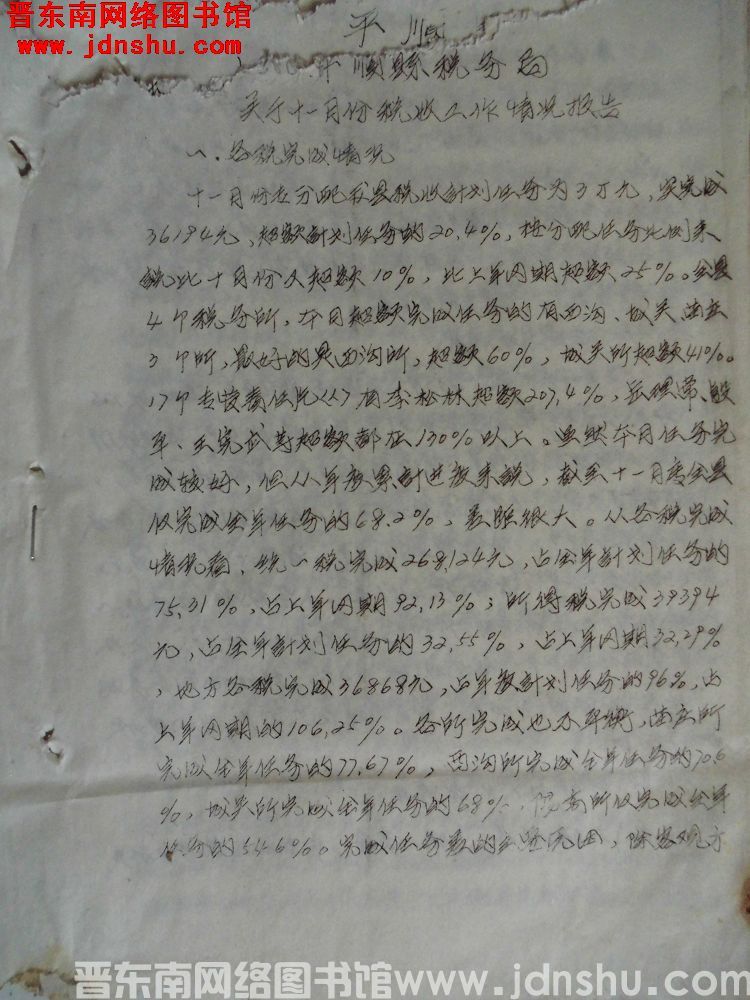 晋东南网络图书馆
www.jdnshu.com
平顺
平顺县税务局
关于十一月份税收工作情况报告
一、各税完成情况
十一月份专分配我县税收计划任务为3万元，实完成
36194元，超额计划任务的20.4%，按分配任务比例来
说比十月份又超额10%，比上年同期超额25%。全县
4个税务所，本月超额完成任务的有西沟、城关
3个所，最好的是西沟所，超额60%，城关所超额41%。
17个专责有李松林超额207.4%，
超额都在130%以上。虽然本月任务完
成较好，但从年度累计进度来说，截至十一月底全县
仅完成全年任务的68.2%，差距很大。从各税完成
情况看，统一税完成268,124元，占全年计划任务的
75.31%，占上年同期92.13%；所得税完成39394
元，占全年计划任务的32.55%，占上年同期32.29%
，地方各税完成36868元，占年度计划任务的96%，占
上年同期的106.25%。各所完成也不平衡，所
完成全年任务的77.67%，西沟所完成全年任务的70.6
%，城关所完成全年任务的68%，所仅完成全年
任务的54.6%。完成任务的主要原因，除客观方
晋东南网络图书馆www.jdnshu.com